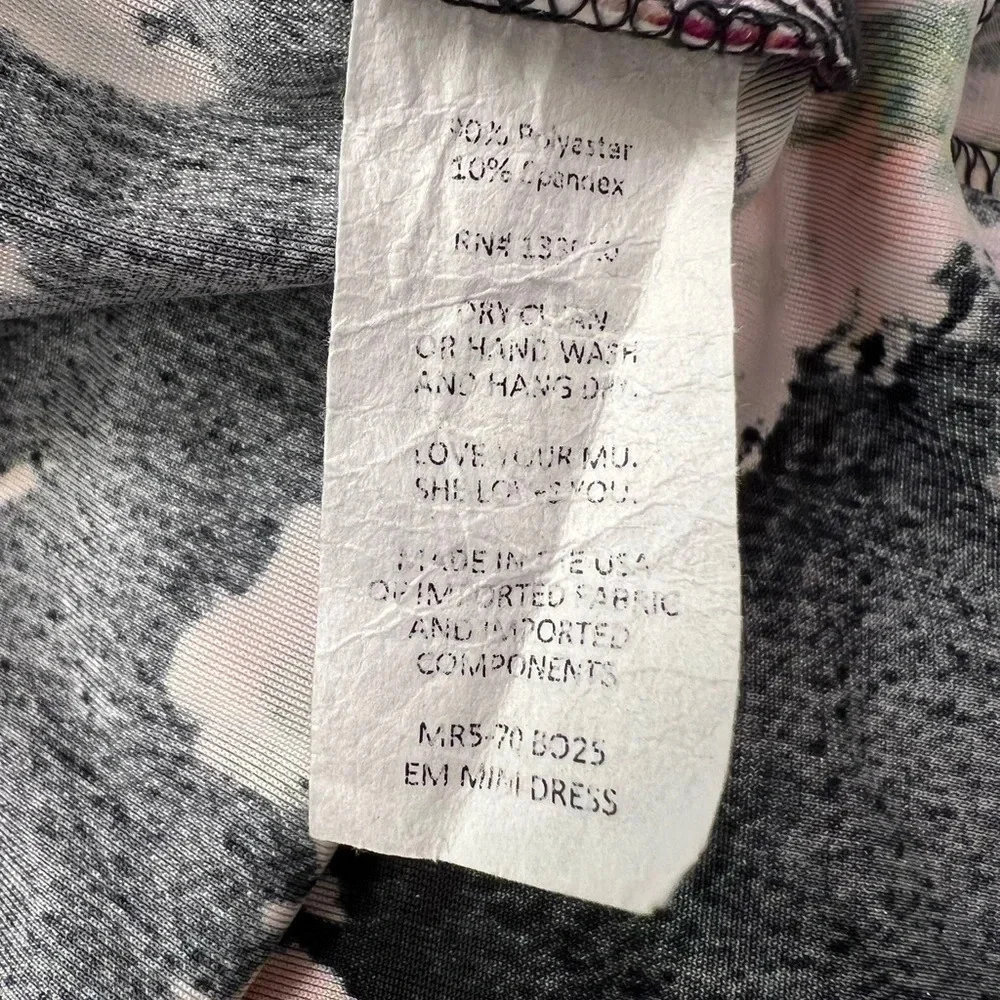 90% Polyester
10% Spandex
RN#
DRY CLEAN
OR HAND WASH
AND HANG DRY.
LOVE YOUR MU.
SHE LOVES YOU.
MADE IN THE USA
OF IMPORTED FABRIC
AND IMPORTED
COMPONENTS
MR5-70 BO25
EM MINI DRESS